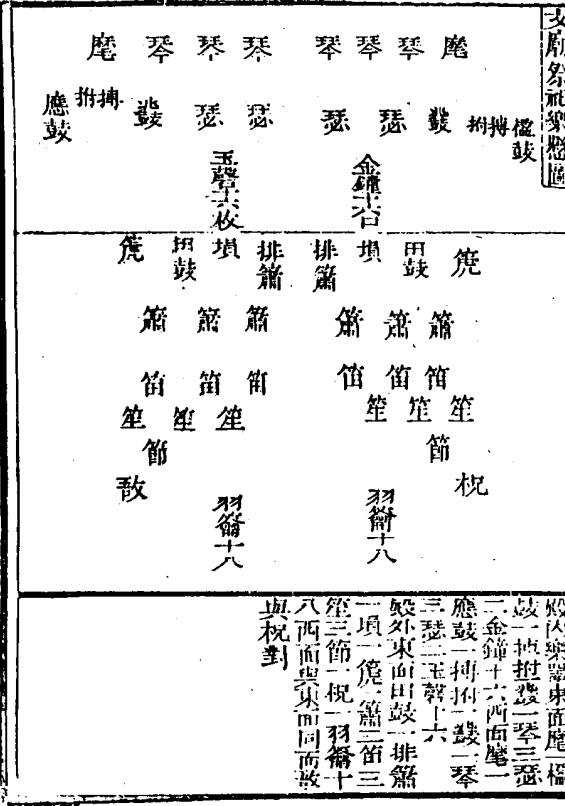 文廟祭祀樂懸圖
麾 琴 琴 琴 琴 琴 琴 麾
楹鼓 搏拊 鼗 瑟 瑟 瑟 瑟 鼗 搏拊 應鼓
金鐘十六口 玉磬十六枚
篪 田鼓 塤 排簫 排簫 塤 田鼓 篪
簫 簫 簫 簫 簫 簫
笛 笛 笛 笛 笛 笛
笙 笙 笙 笙 笙 笙
節 節
柷 敔
羽籥十八 羽籥十八
殿內樂器東面麾一楹
鼓一搏拊一鼗一琴三瑟
二金鐘十六西面麾一
應鼓一搏拊一鼗一琴
三瑟二玉磬十六
殿外東面田鼓一排簫
一塤一篪一簫三笛三
笙三節一柷一羽籥十
八西面與東面同而敔
與柷對